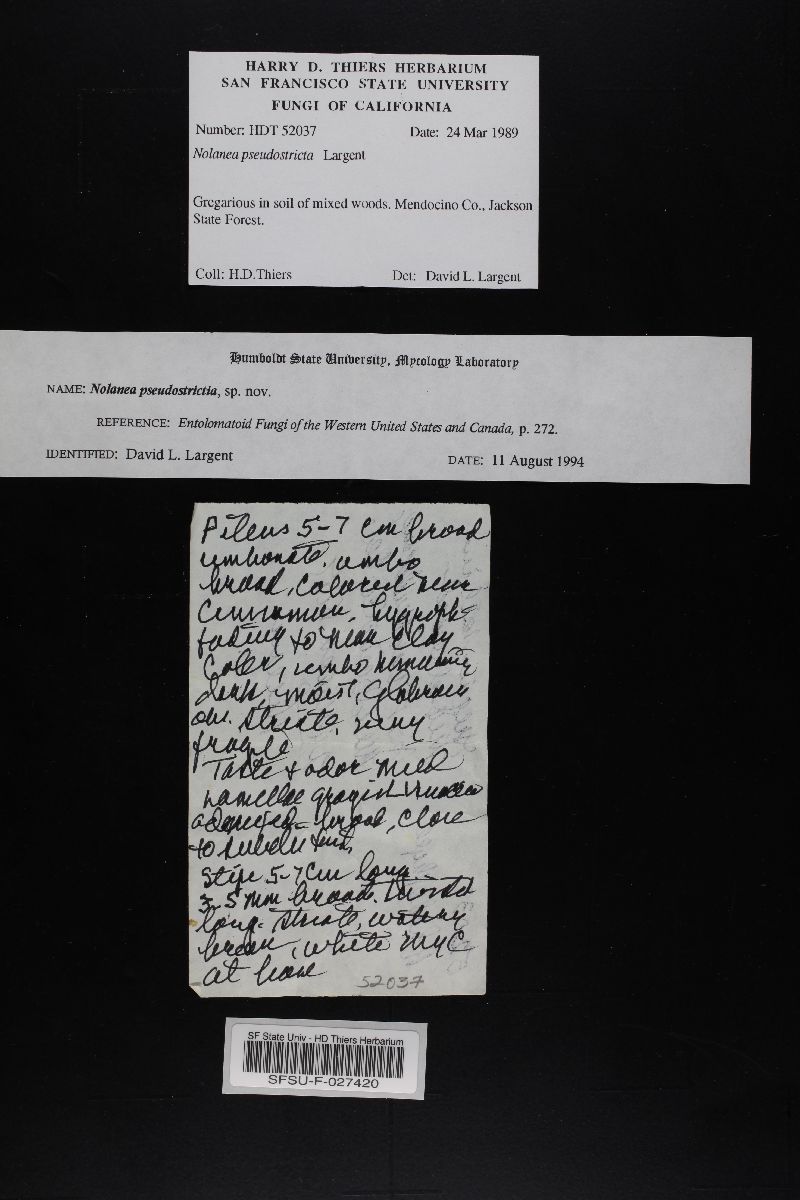 HARRY D. THIERS HERBARIUM
SAN FRANCISCO STATE UNIVERSITY
FUNGI OF CALIFORNIA
Number: HDT 52037 Date: 24 Mar 1989
Nolanea pseudostricta Largent
Gregarious in soil of mixed woods. Mendocino Co., Jackson
State Forest.
Coll: H.D.Thiers Det: David L. Largent
Humboldt State University, Mycology Laboratory
NAME: Nolanea pseudostrictia, sp. nov.
REFERENCE: Entolomatoid Fungi of the Western United States and Canada, p. 272.
IDENTIFIED: David L. Largent DATE: 11 August 1994
Pileus 5-7 cm broad
umbonate, umbo
broad, colored near
cinnamon, hygroph-
fading to near clay
color, umbo remaining
dark, moist, glabrous
striate, very
fragile
Taste & odor mild
Lamellae grayish
broad, close
to
Stipe 5-7 cm long
3-5 mm broad, twisted
long. striate, watery
brown, white myc
at base
52037
SF State Univ - HD Thiers Herbarium
SFSU-F-027420